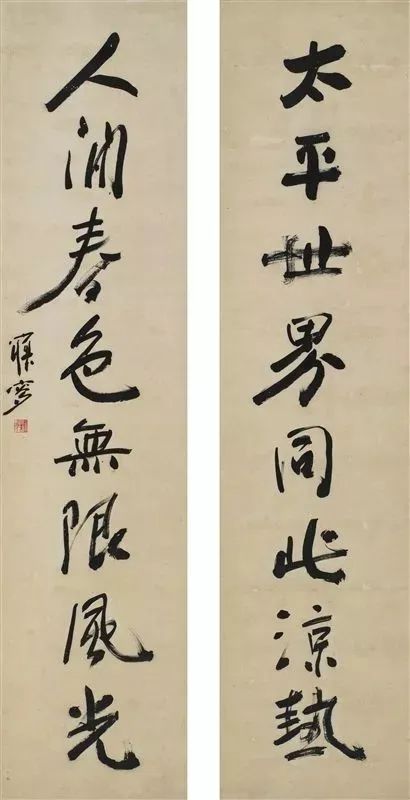 太平世界同此涼熱
人间春色無限風光
寐叟